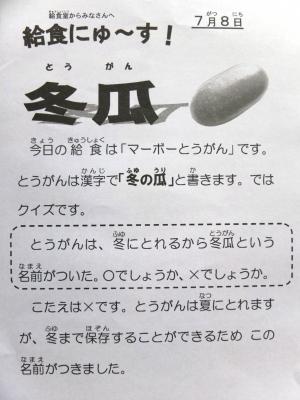 給食室からみなさんへ
7月8日
給食にゅ～す!
冬瓜
今日の給食は「マーボーとうがん」です。
とうがんは漢字で「冬の瓜」と書きます。では
クイズです。
とうがんは、冬にとれるから冬瓜という
名前がついた。〇でしょうか、×でしょうか。
こたえは×です。とうがんは夏にとれます
が、冬まで保存することができるため この
名前がつきました。